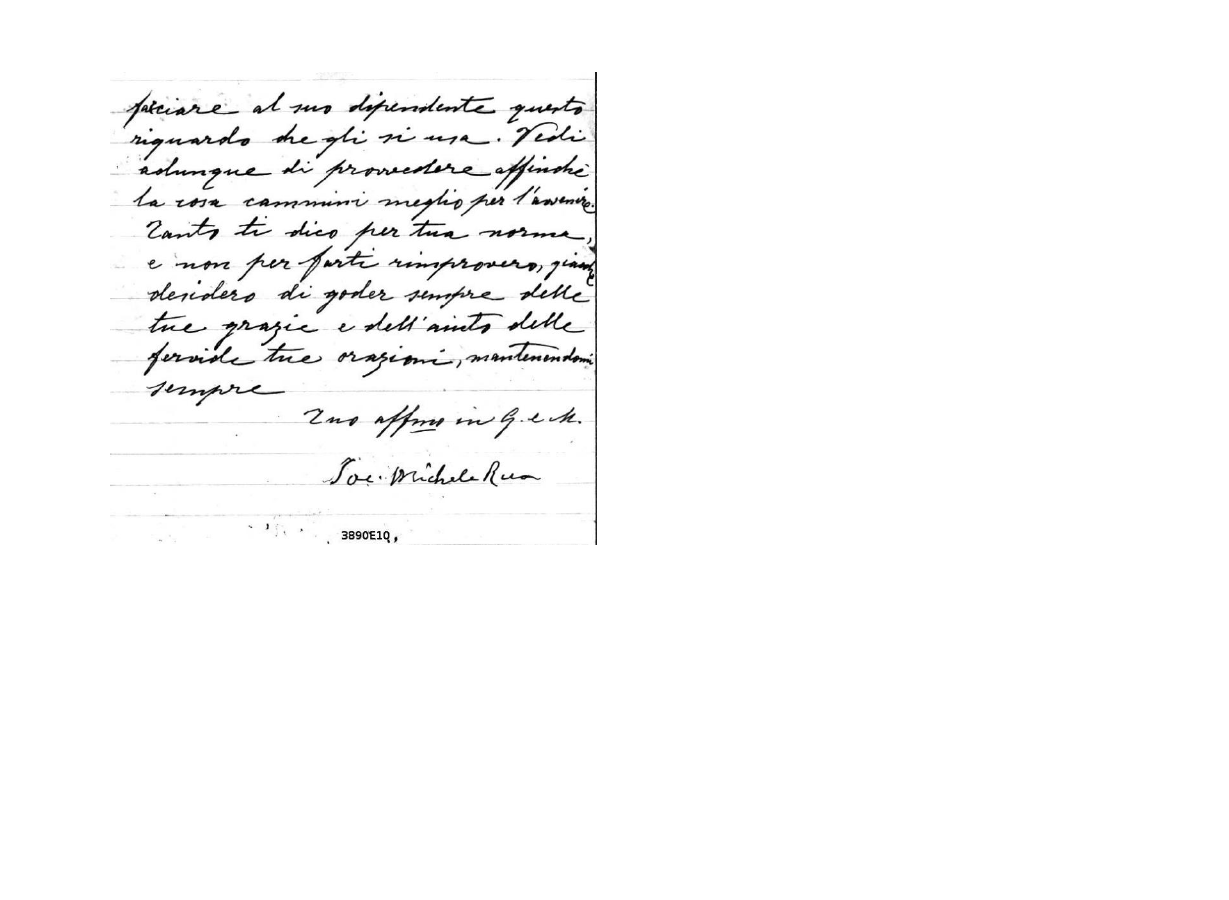 al suo dipendente questo
riguardo che gli si usa. Vedi
adunque di provvedere affinché
la cosa cammini meglio per l'avvenire.
Tanto ti dico per tua norma,
e non per farti rimprovero, giacché
desidero di goder sempre delle
tue grazie e dell'aiuto delle
fervide tue orazioni, mantenendomi
sempre
Tuo affmo in G. e M.
Sac. Michele Rua
3890E10